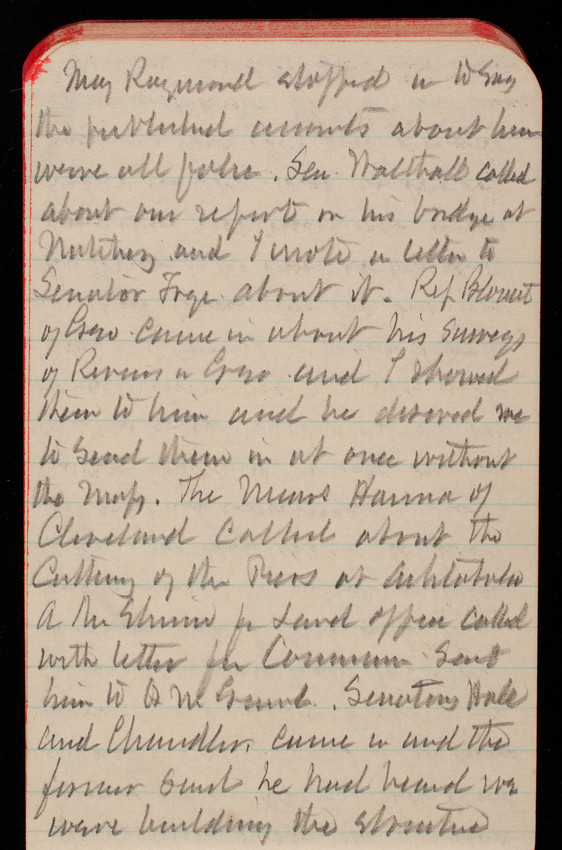 Maj Raymond stopped in to say
the published accounts about him
were all false. Sen. Walthall called
about our report on his bridge at
Natchez and I wrote a letter to
Senator Frye about it. Rep Blount
of Geo came in about his Surveys
of Rivers in Geo and I showed
them to him and he desired me
to send them in at once without
the Maps. The Messrs Hanna of
Cleveland called about the
Cutting of the Piers at Ashtabula
A Mr fr Land office called
with letter fr Commr Sent
him to Senators Hale
and Chandler came in and the
former said he had heard we
were building the structure